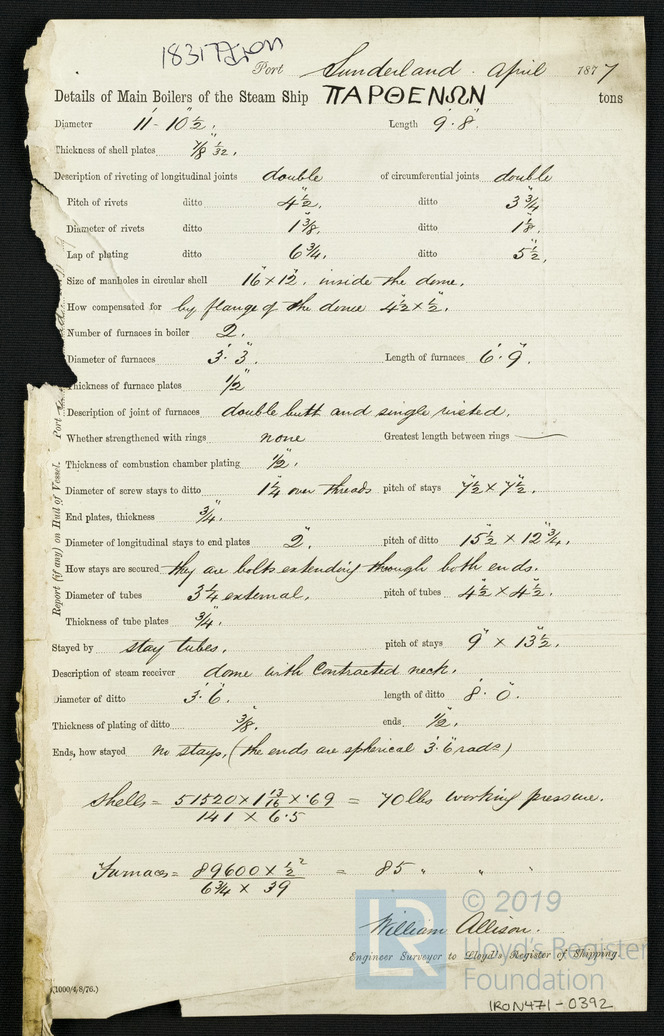 18317 Iron
Port Sunderland. April 1877
Details of Main Boilers of the Steam Ship ΠΑΡΘΕΝΩΝ tons
Diameter 11'- 10½". Length 9'. 8".
Thickness of shell plates ⅞" 1/32.
Description of riveting of longitudinal joints double of circumferential joints double
Pitch of rivets ditto 4½". ditto 3¾"
Diameter of rivets ditto 1⅜". ditto 1⅛".
Lap of plating ditto 6¾". ditto 5½".
Size of manholes in circular shell 16" × 12". inside the dome.
How compensated for by flange of the dome 4½" × ½".
Number of furnaces in boiler 2.
Diameter of furnaces 3'. 3". Length of furnaces 6'. 9".
Thickness of furnace plates ½"
Description of joint of furnaces double butt and single riveted.
Whether strengthened with rings none Greatest length between rings —
Thickness of combustion chamber plating ½".
Diameter of screw stays to ditto 1¼" over threads pitch of stays 7½" × 7½".
End plates, thickness ¾".
Diameter of longitudinal stays to end plates 2". pitch of ditto 15½" × 12¾".
How stays are secured they are bolts extending through both ends.
Diameter of tubes 3¼" external. pitch of tubes 4½" × 4½".
Thickness of tube plates ¾".
Stayed by stay tubes. pitch of stays 9" × 13½".
Description of steam receiver dome with contracted neck.
Diameter of ditto 3'. 6". length of ditto 8'. 0".
Thickness of plating of ditto ⅜". ends ½".
Ends, how stayed no stays, (the ends are spherical 3'. 6" rads)
Shells = 51520 × 1 13/16 × .69 = 70 lbs working pressure.
141 × 6.5
Furnaces = 89600 × ½² = 85 " " "
6¾ × 39
William Allison.
Engineer Surveyor to Lloyd's Register of Shipping.
Report (if any) on Hull of Vessel. Port
(1000/4/8/76.)
LR
© 2019
Lloyd's Register
Foundation
IRON471-0392